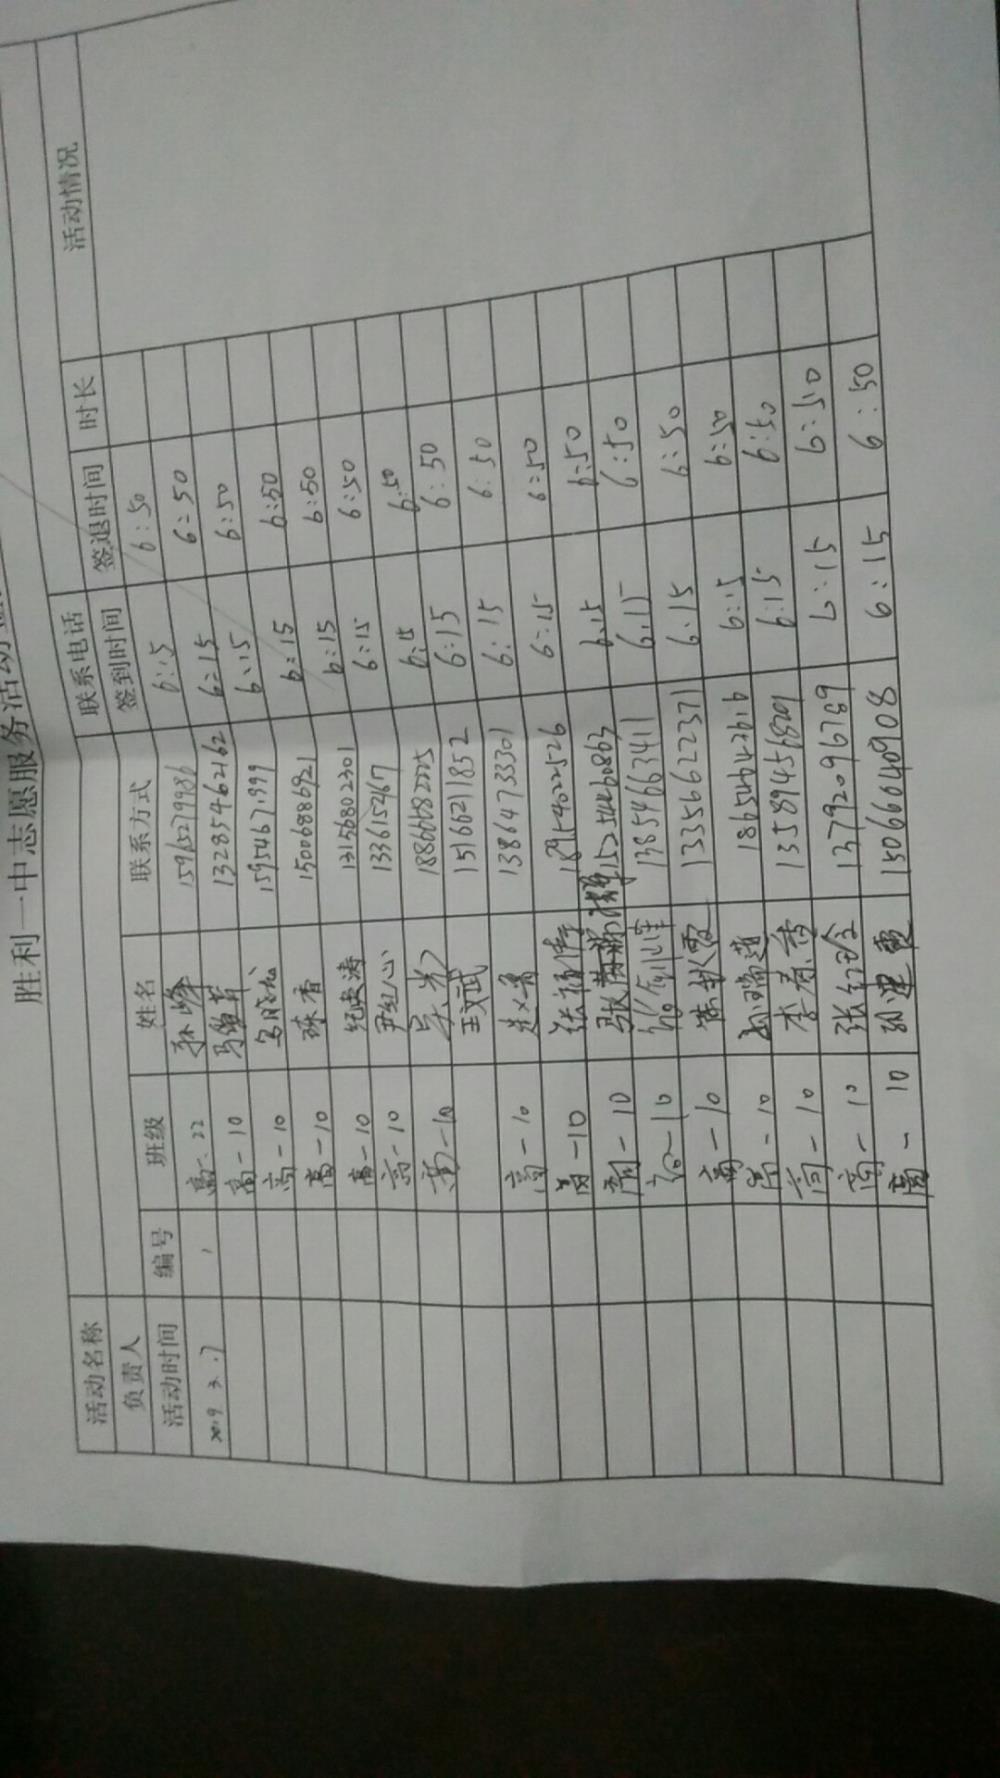 胜利一中志愿服务活动
活动名称 联系电话
负责人 活动情况
活动时间 编号 班级 姓名 联系方式 签到时间 签退时间 时长
2019.3.7 1 高一22 孙峰 15965279986 6:15 6:50
高一10 13285462162 6:15 6:50
高一10 6:15 6:50
高一10 15006886921 6:15 6:50
高一10 纪洪涛 13156802301 6:15 6:50
高一10 尹红心 6:15 6:50
高一10 吴光 18866682225 6:15 6:50
王文武 15166211852 6:15 6:50
高一10 13864733301 6:15 6:50
高一10 18954022526 6:15 6:50
高一10 6:15 6:50
高一10 13854663411 6:15 6:50
高一10 13356622371 6:15 6:50
高一10 18654642616 6:15 6:50
高一10 李春香 13589456201 6:15 6:50
高一10 张红玲 13792096789 6:15 6:50
高一10 15066040908 6:15 6:50